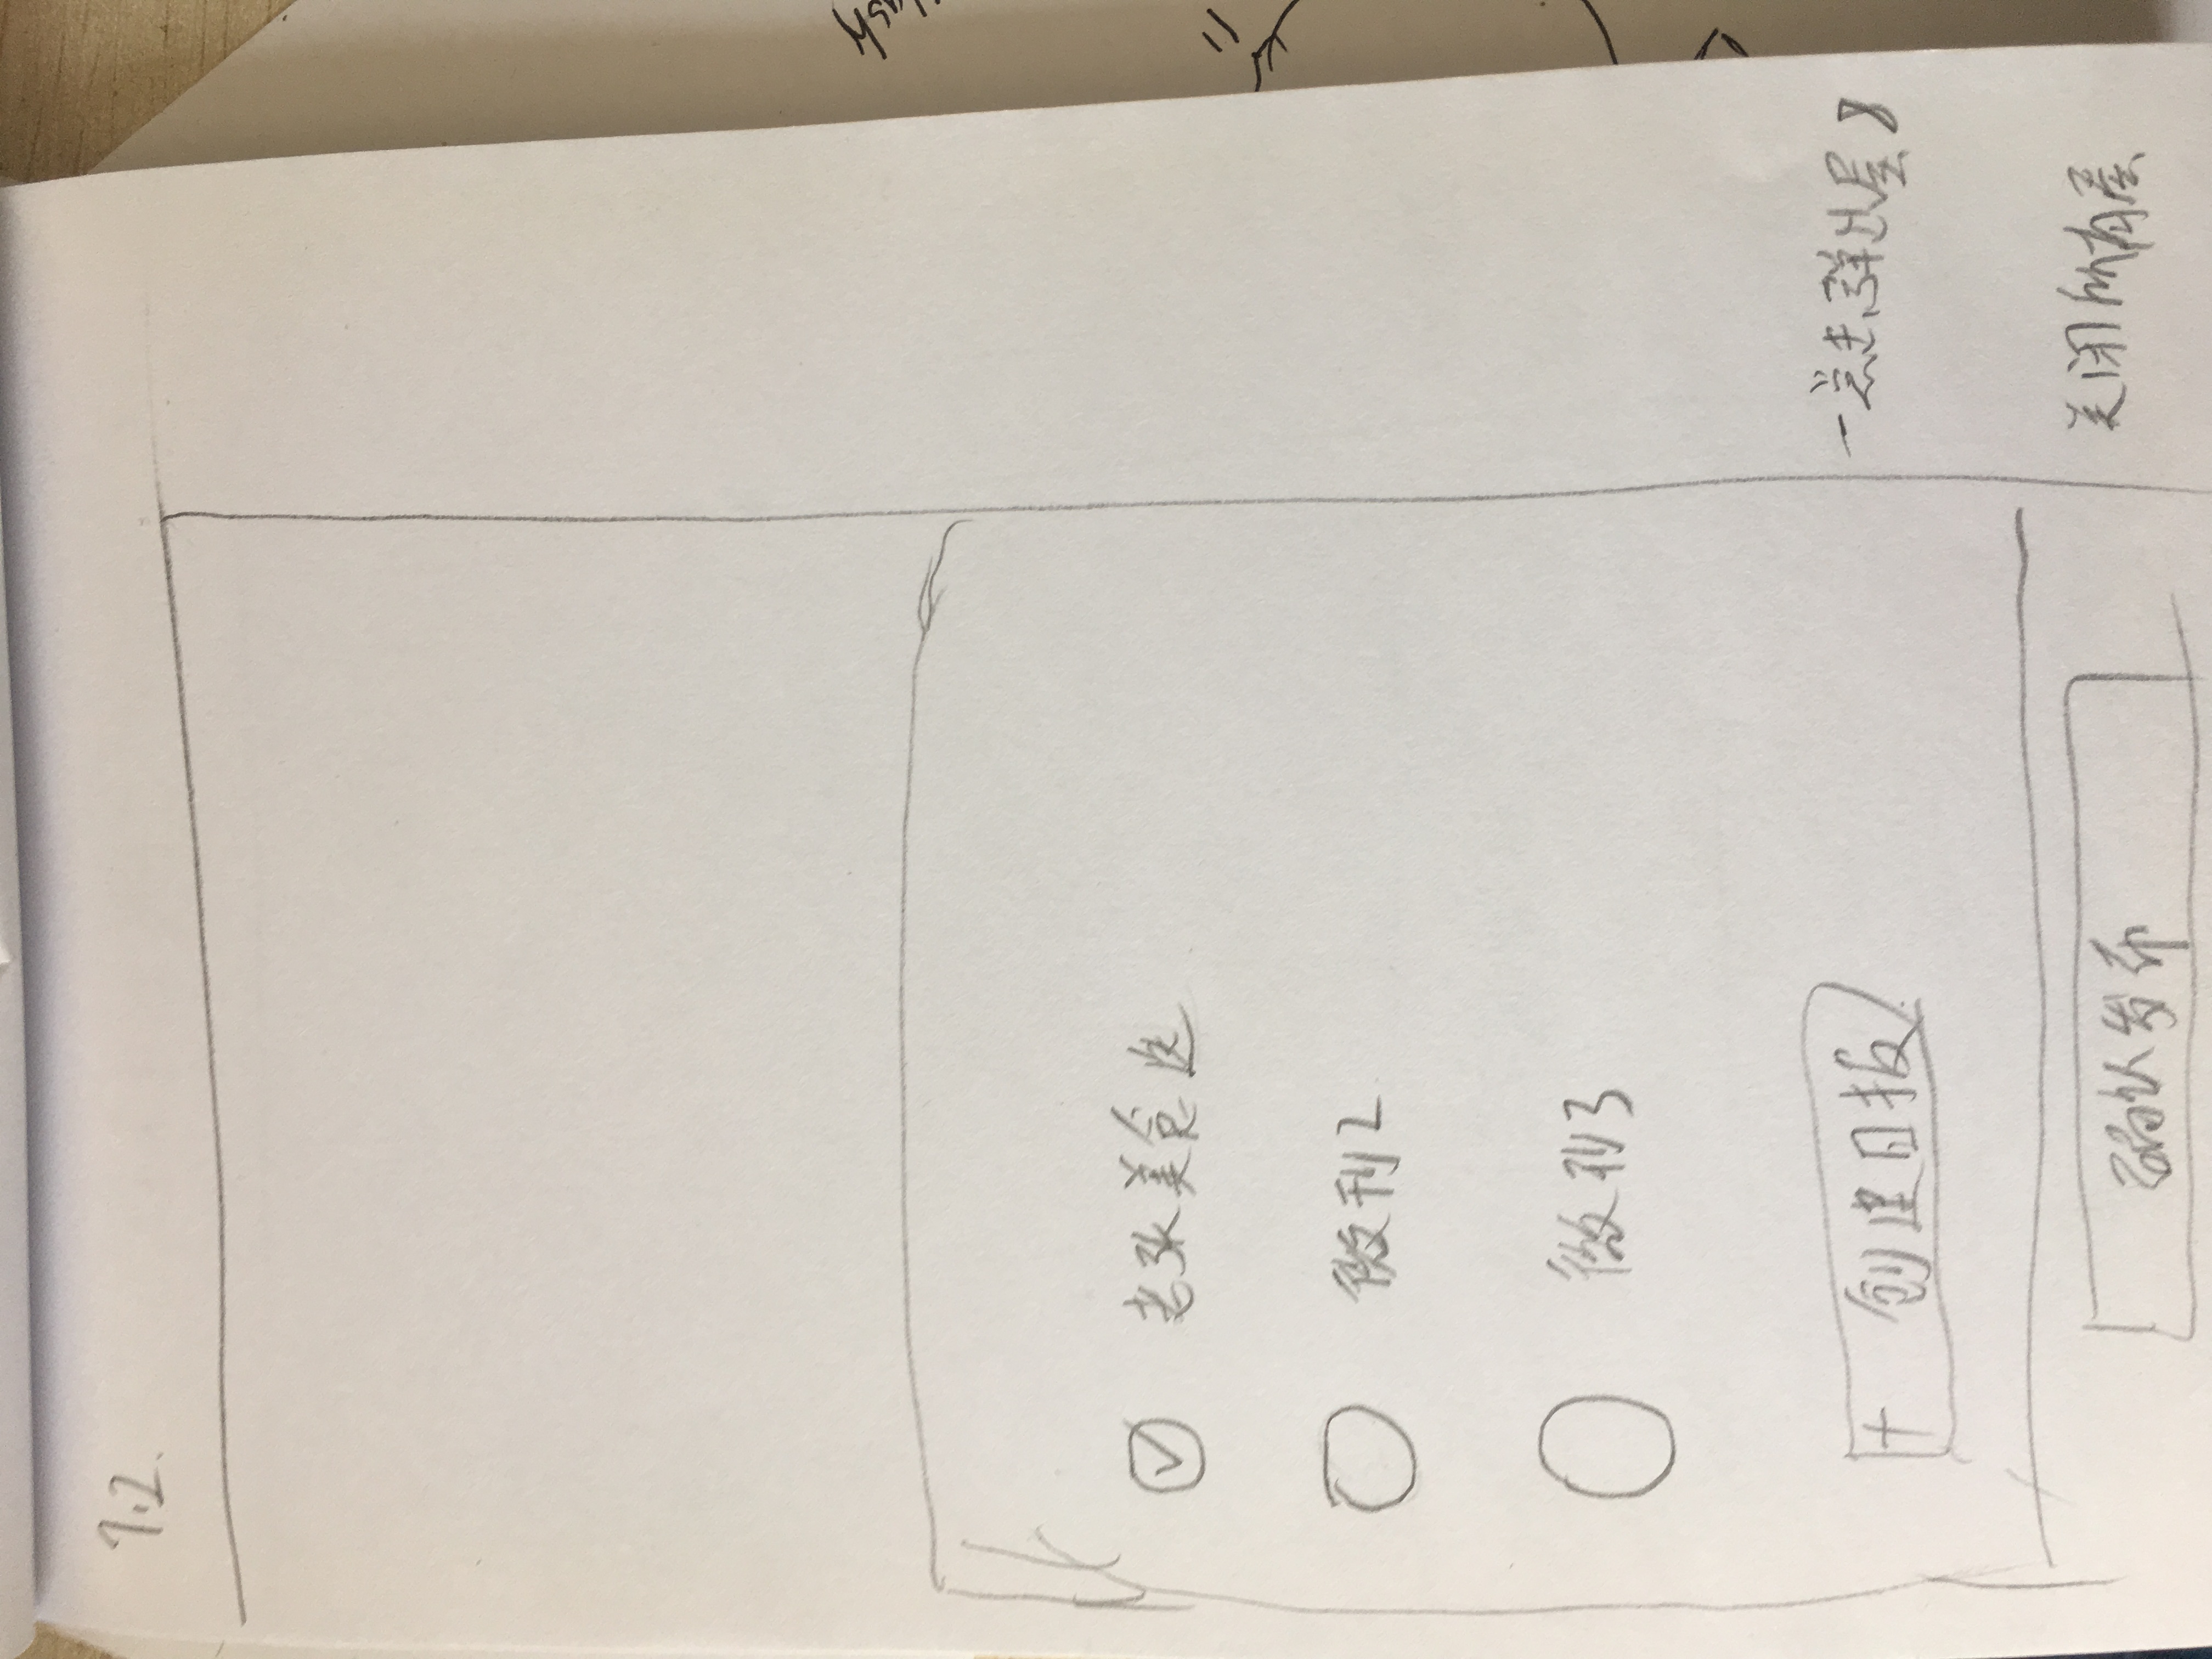 1.2.
老张美食选
微刊2
微刊3
+ 创建日报
一点击弹出层8
确认发布
关闭所有层